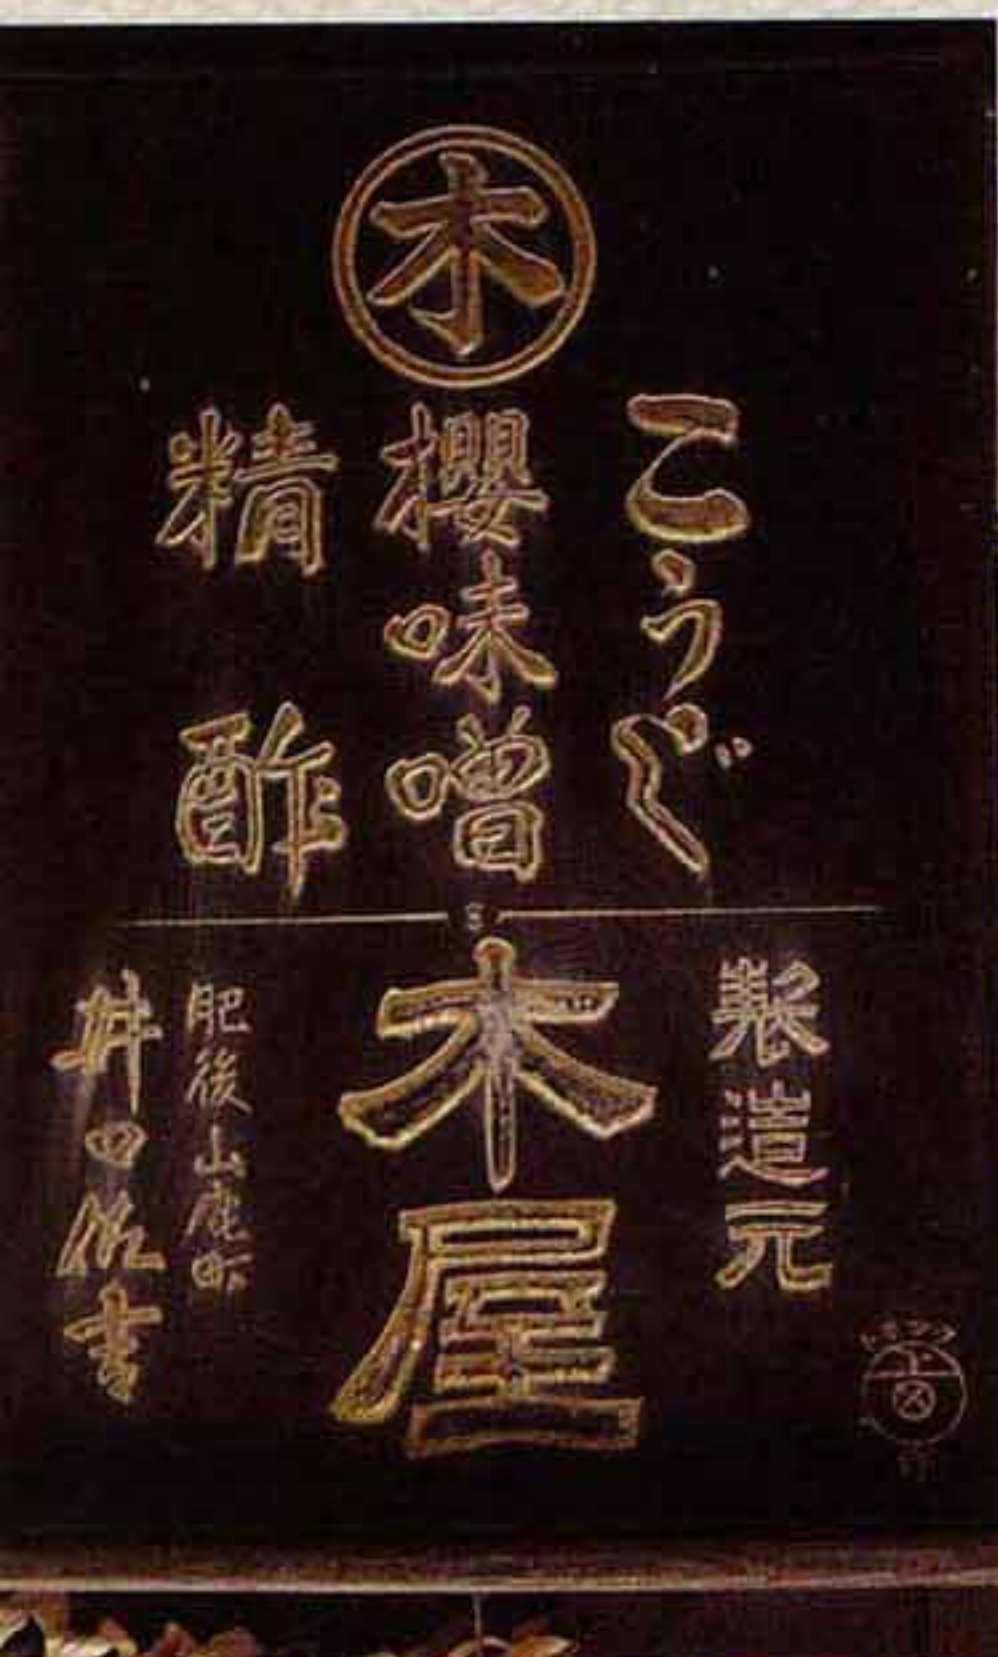 木
こうぢ
櫻味噌
精酢
製造元
木屋
肥後山鹿町
井口佐吉